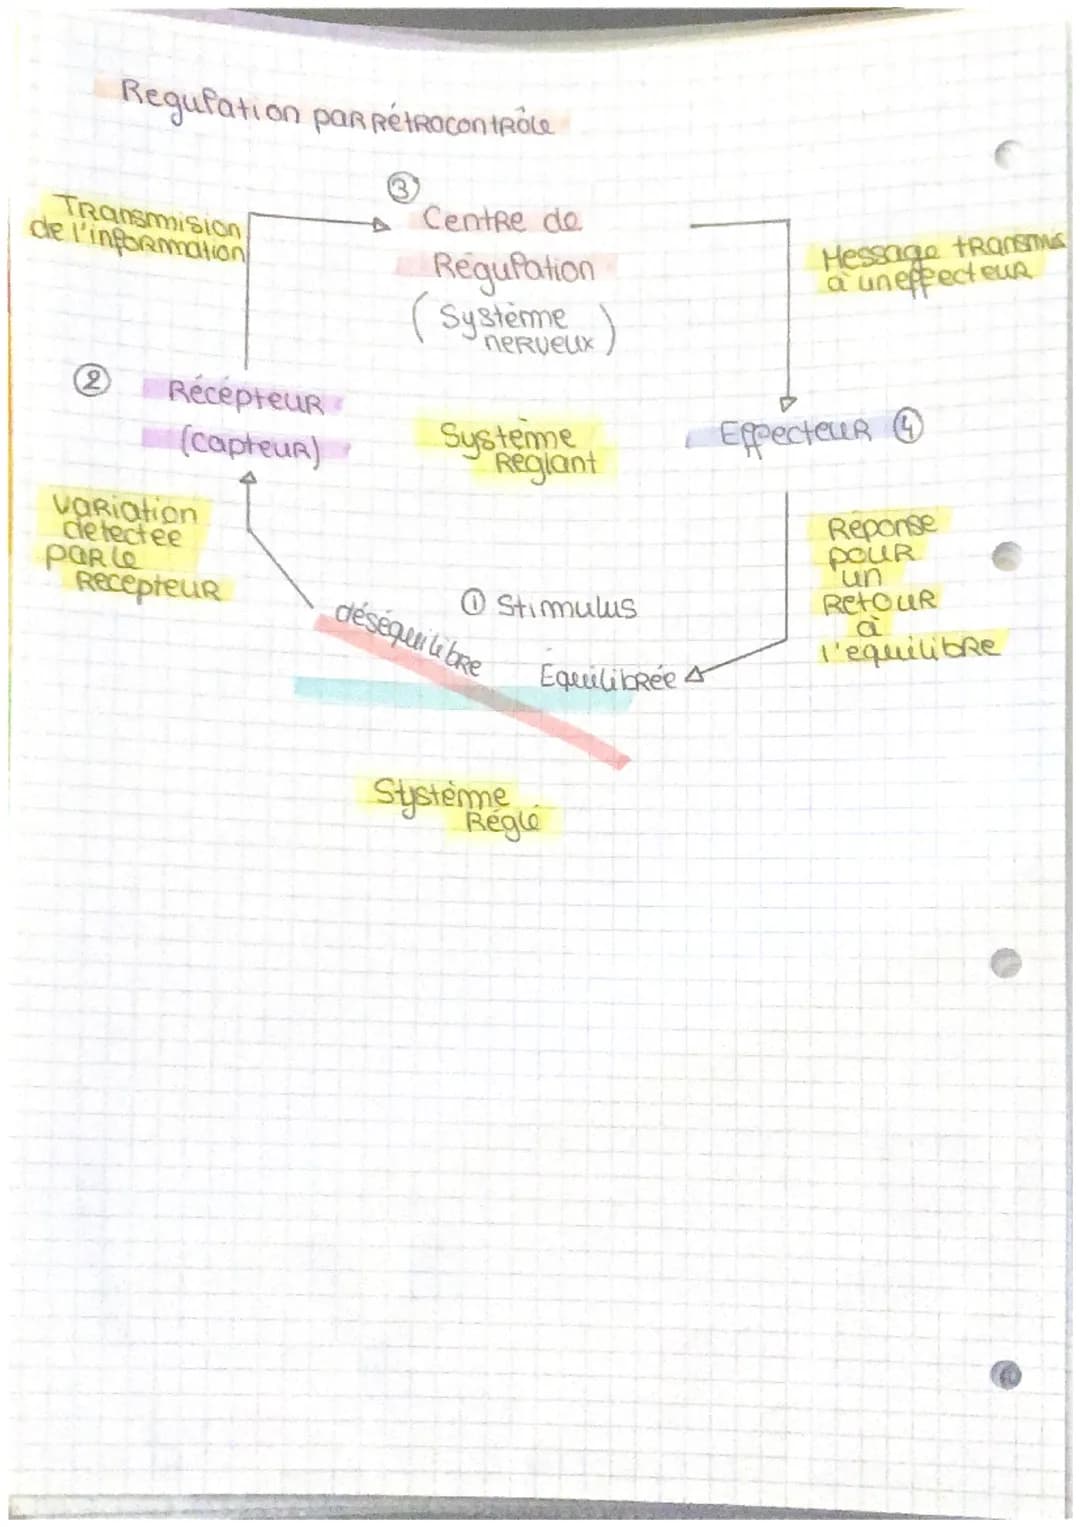 Regulation par rétrocontrôle
③
Transmision
de l'information
Centre de
Régulation
(Système
nerveux)
Message transmis
à un effecteur
②
Récépteur
(capteur)
Système
Réglant
Effecteur ④
Variation
detectée
par le
Recepteur
Réponse
pour
un
Retour
à
l'equilibre
① Stimulus
déséquilibre
Equilibrée
Système
Réglé